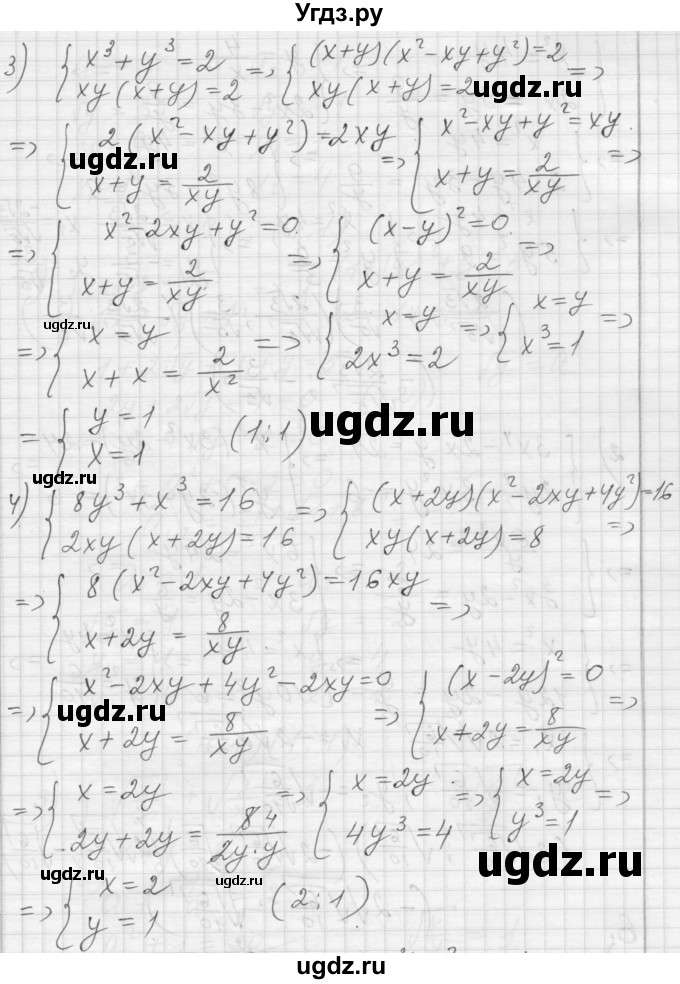 Угдз.ру
3) { x³ + y³ = 2 ; xy(x+y) = 2 => { (x+y)(x² - xy + y²) = 2 ; xy(x+y) = 2 =>
=> { 2(x² - xy + y²) = 2xy ; x+y = 2/xy => { x² - xy + y² = xy ; x+y = 2/xy =>
=> { x² - 2xy + y² = 0 ; x+y = 2/xy => { (x-y)² = 0 ; x+y = 2/xy =>
=> { x = y ; x + x = 2/x² => { x = y ; 2x³ = 2 => { x = y ; x³ = 1 =>
= { y = 1 ; x = 1 (1;1)
4) { 8y³ + x³ = 16 ; 2xy(x+2y) = 16 => { (x+2y)(x² - 2xy + 4y²) = 16 ; xy(x+2y) = 8 =>
=> { 8(x² - 2xy + 4y²) = 16xy ; x+2y = 8/xy =>
=> { x² - 2xy + 4y² - 2xy = 0 ; x+2y = 8/xy => { (x-2y)² = 0 ; x+2y = 8/xy =>
=> { x = 2y ; 2y + 2y = 8 4/2y·y => { x = 2y ; 4y³ = 4 => { x = 2y ; y³ = 1 =>
=> { x = 2 ; y = 1 (2;1)
ugdz.ru